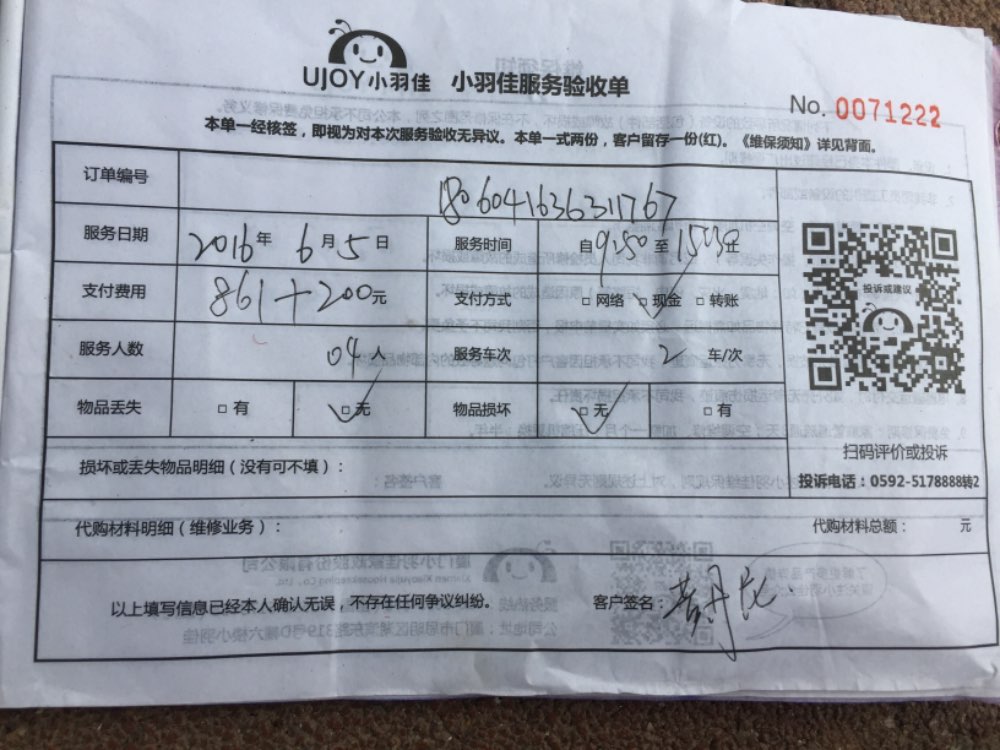 UJOY小羽佳 小羽佳服务验收单
No. 0071222
本单一经核签，即视为对本次服务验收无异议。本单一式两份，客户留存一份(红)。《维保须知》详见背面。
订单编号 1806041636311767
服务日期 2016年 6月5日 服务时间 自9:50至15:05止
支付费用 861+200元 支付方式 □网络 □现金 □转账
投诉或建议
服务人数 04人 服务车次 2 车/次
物品丢失 □有 □无 物品损坏 □无 □有
扫码评价或投诉
损坏或丢失物品明细（没有可不填）：
投诉电话：0592-5178888转2
代购材料明细（维修业务）： 代购材料总额： 元
以上填写信息已经本人确认无误，不存在任何争议纠纷。 客户签名：